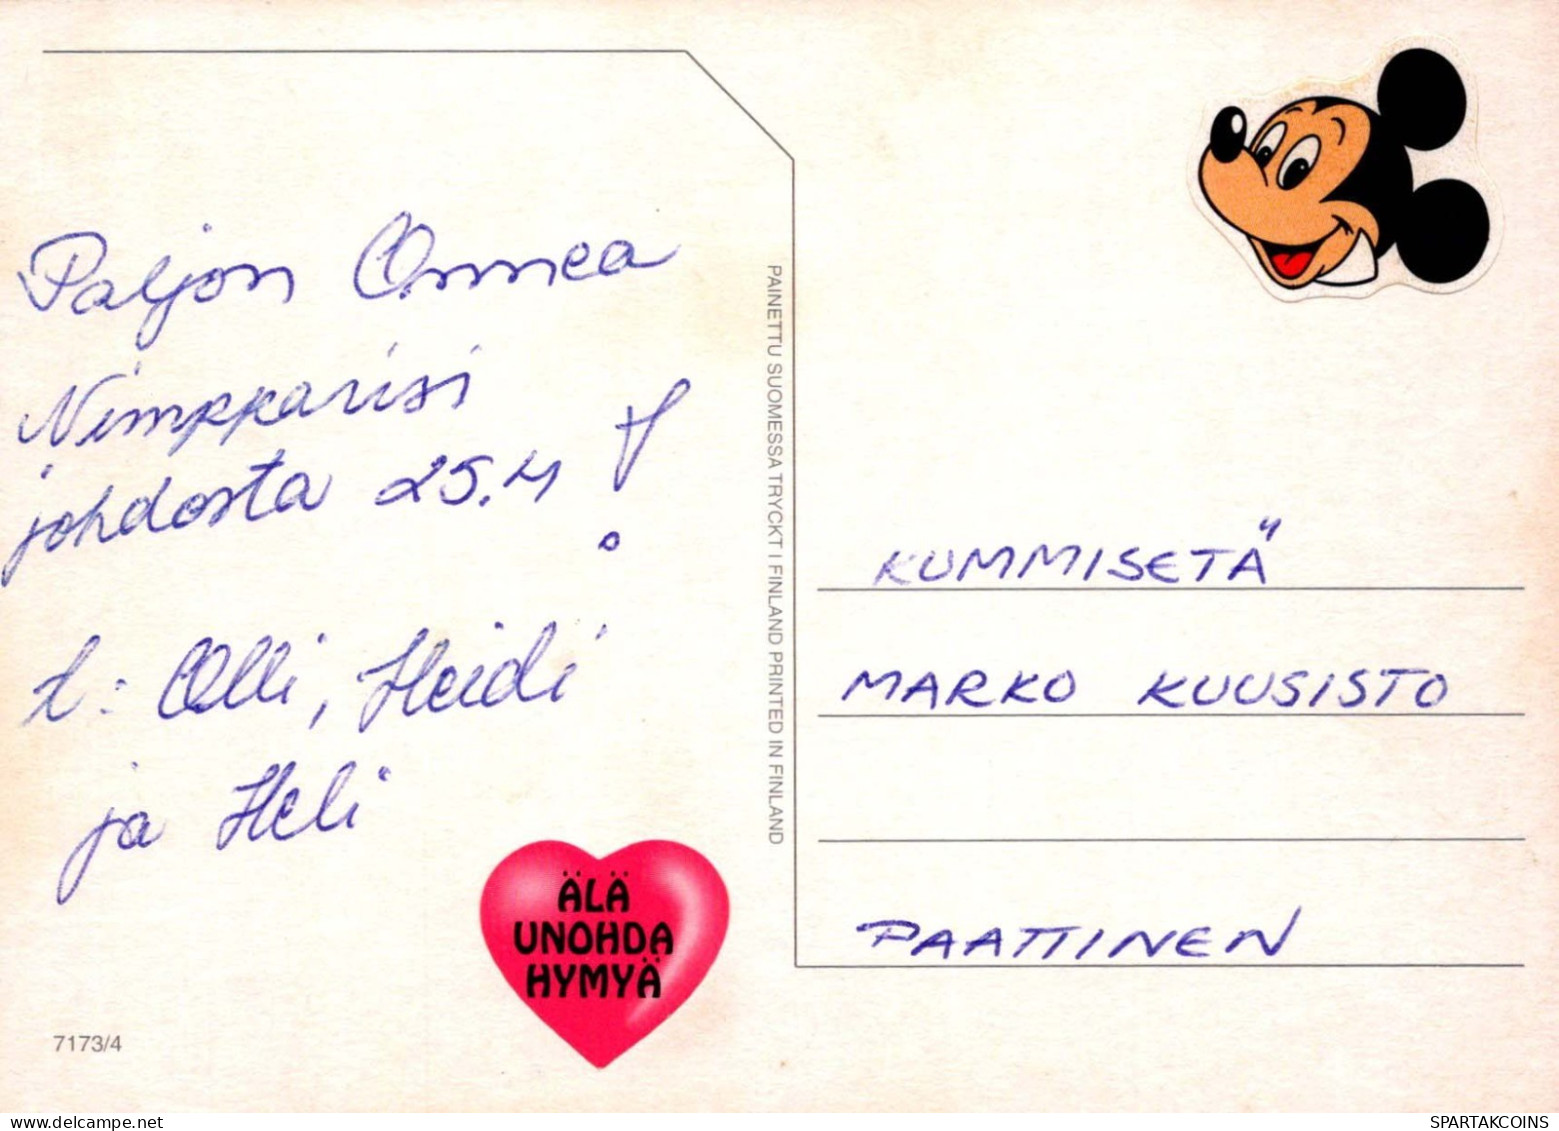 Paljon Onnea
Nimppparisi
johdosta 25.4 !
t: Olli, Heidi
ja Heli
ÄLÄ
UNOHDA
HYMYÄ
7173/4
PAINETTU SUOMESSA TRYCKT I FINLAND PRINTED IN FINLAND
KUMMISETÄ
MARKO KUUSISTO
PAATTINEN
delcampe.net
SPARTAKCOINS